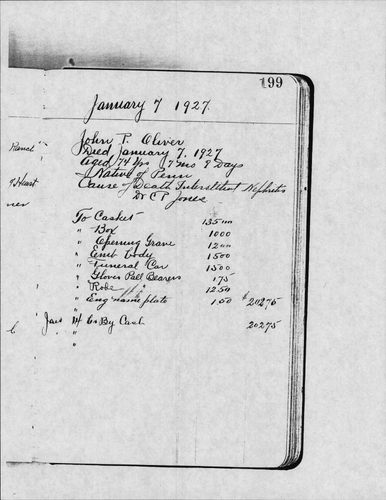 199
January 7 1927.
John P. Oliver
Died January 7, 1927
Aged 74 Yrs 7 Mos 9 Days
Native of Penn
Cause of Death Interstitial Nephritis
Dr C P Jones
To Casket 135 00
" Box 10 00
" Opening Grave 12 00
" Emb body 15 00
" Funeral Car 15 00
" Gloves Pall Bearers 1 75
" Robe " " 12 50
" Eng name plate 1 50 $ 202 75
Jan 14 By Cash 202 75
"
"
Ranch
Heart